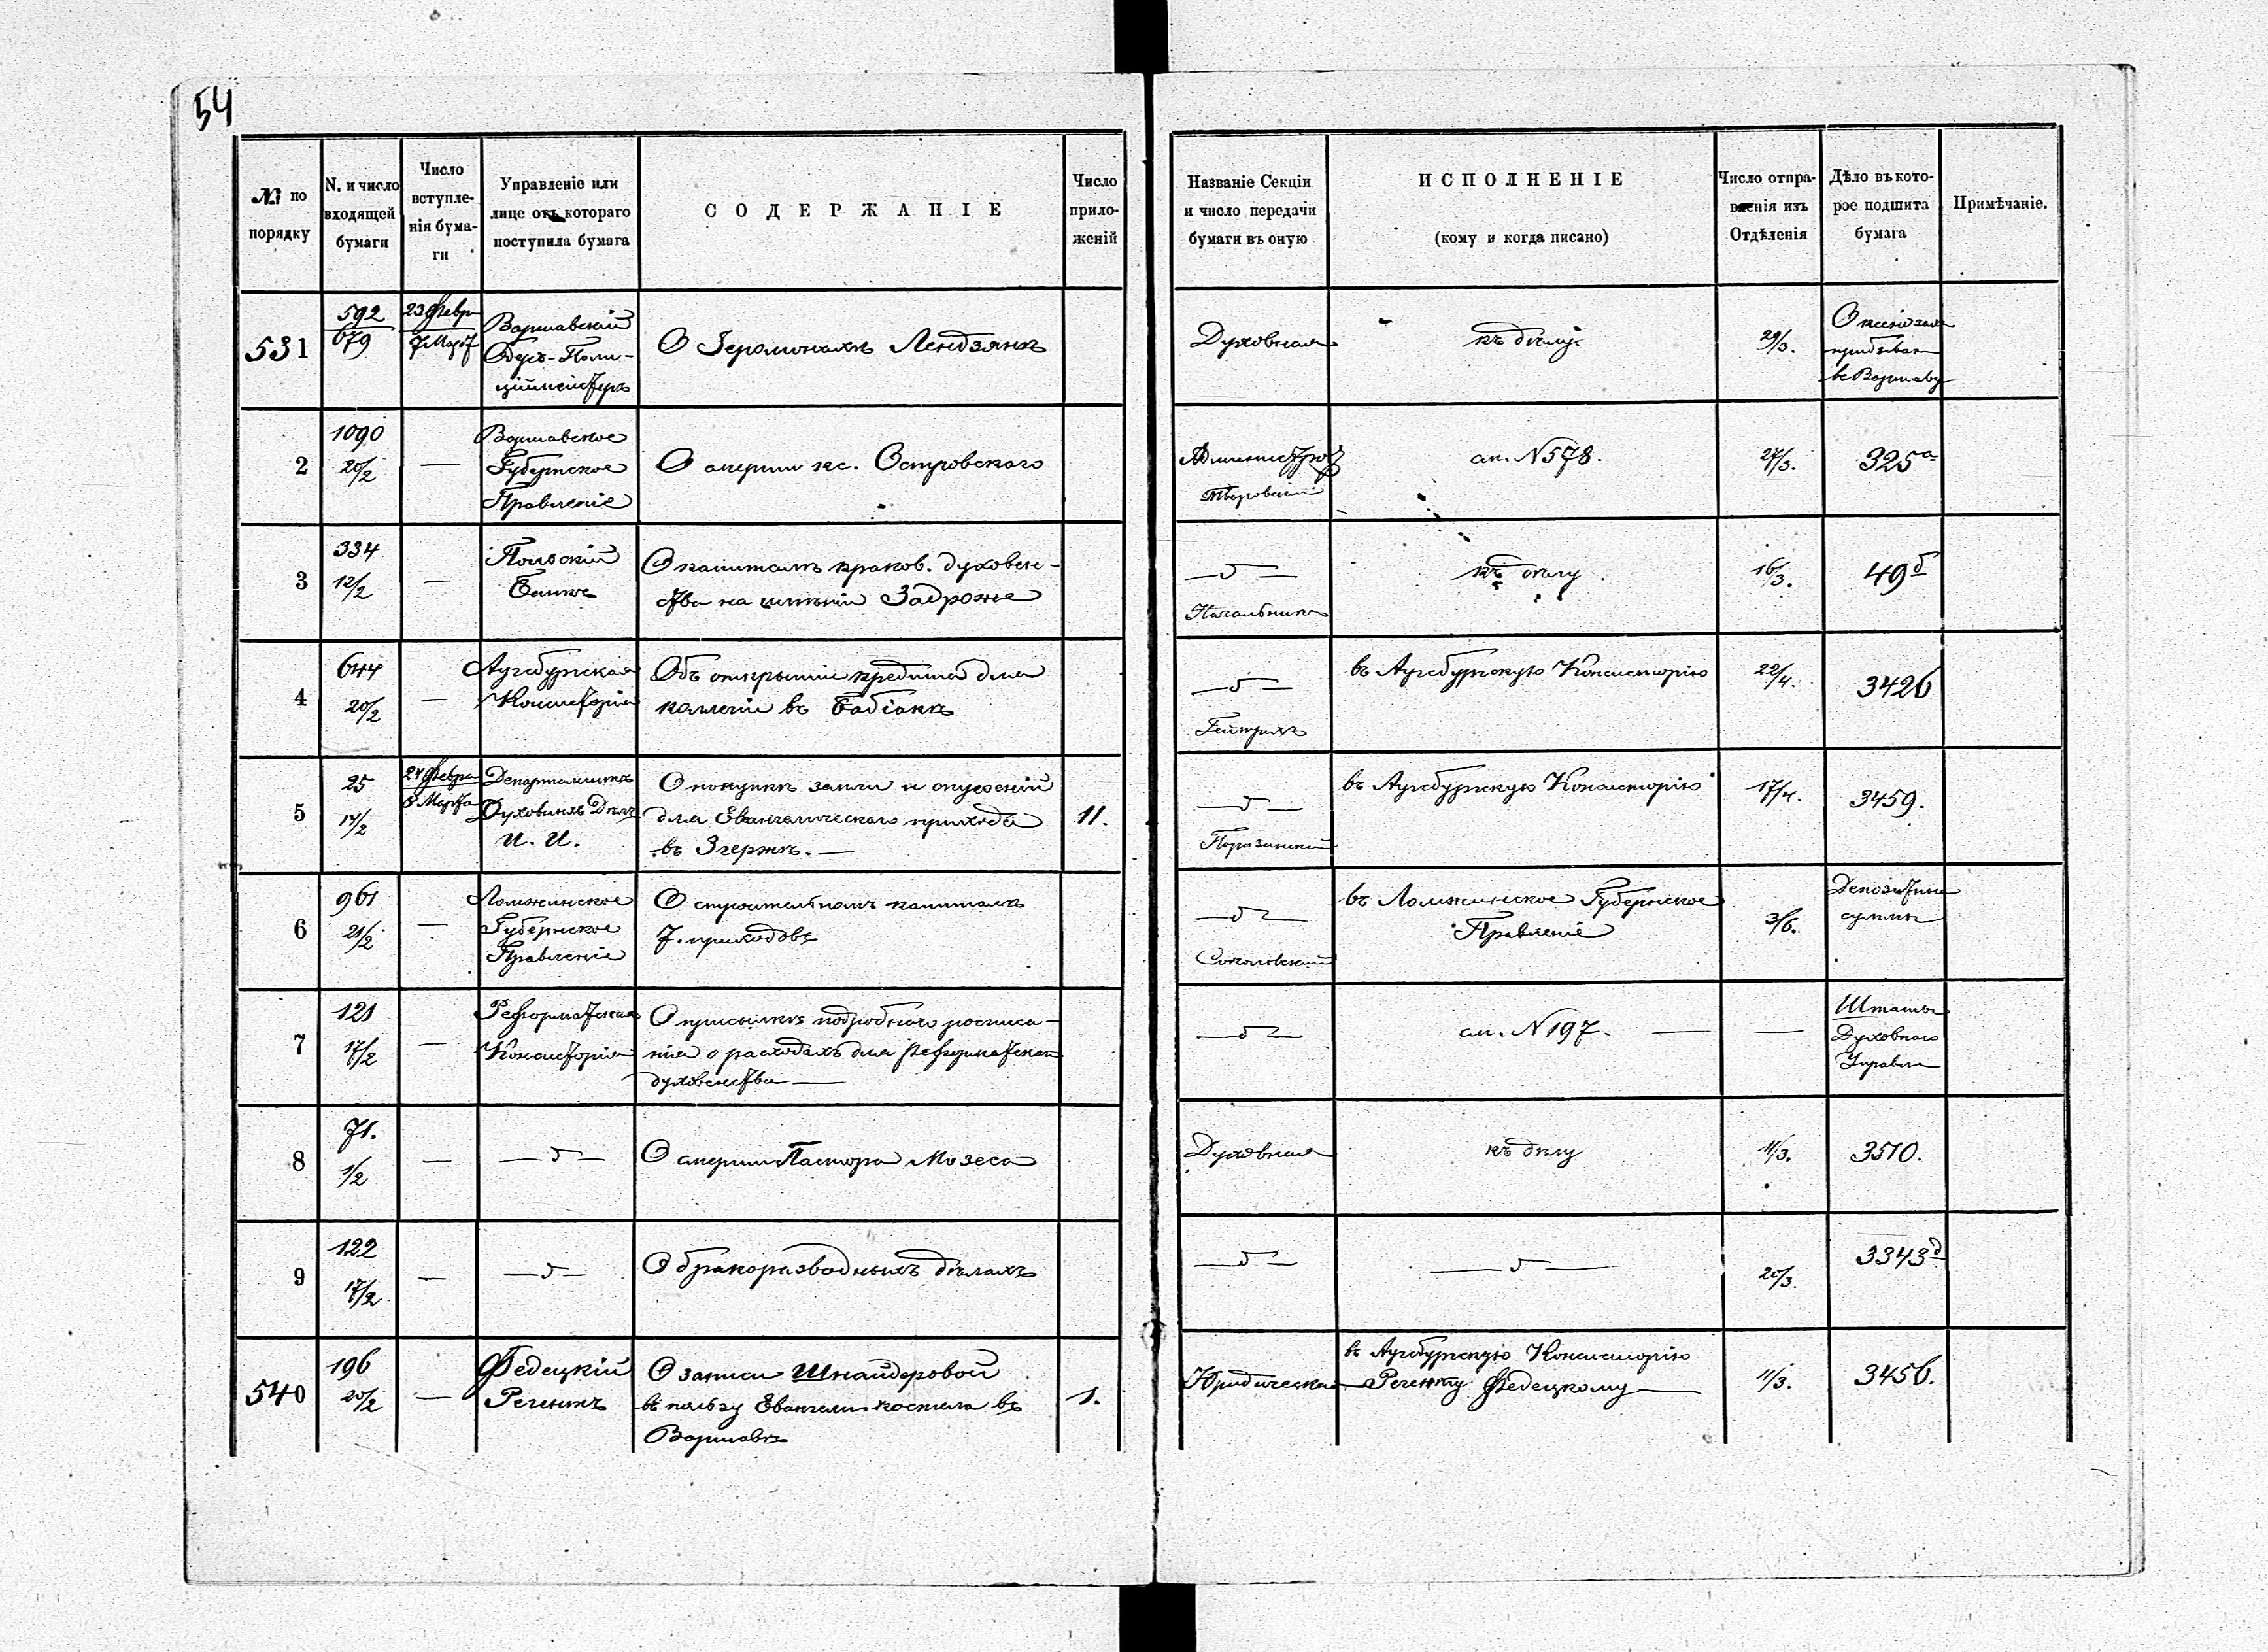 54
№ по порядку
N. и число входящей бумаги
Число вступленія бумаги
Управленіе или лице отъ котораго поступила бумага
СОДЕРЖАНІЕ
Число приложеній
Названіе Секціи и число передачи бумаги въ оную
ИСПОЛНЕНІЕ
(кому и когда писано)
Число отправленія изъ Отдѣленія
Дѣло въ которое подшита бумага
Примѣчаніе.
531
592
679
23 Февр
7 Март
Варшавскій
Оберъ-Поли-
ціймейстеръ
О Іеромонахѣ Лендзянѣ
Духовная
къ дѣлу
29/3.
прибыван
въ Варшаву
2
1090
20/2
—
Варшавское
Губернское
Правленіе
О смерти кс. Островскаго
сп. N 578.
27/3.
325а
3
334
12/2
—
Польскій
Банкъ
О капиталѣ краков. духовен-
ства на имѣніи Задроже
— " —
Начальникъ
къ дѣлу
16/3.
49б
4
644
20/2
—
Аугсбургская
Консисторія
Объ открытіи кредита для
коллегіи въ Бабіакѣ
— " —
въ Аугсбургскую Консисторію
22/4.
3426
5
25
14/2
24 Февра
8 Марта
Департаментъ
Духовныхъ Дѣлъ
И. И.
О покупкѣ земли и строеній
для Евангелическаго прихода
въ Згержѣ. —
11.
— " —
въ Аугсбургскую Консисторію
17/4.
3459.
6
961
21/2
—
Ломжинское
Губернское
Правленіе
О строительномъ капиталѣ
7. приходовъ
— " —
Соколовскій
въ Ломжинское Губернское
Правленіе
3/6.
Депозитные
суммы
7
121
17/2
—
Реформатская
Консисторія
О присылкѣ подробнаго росписа-
нія о расходахъ для Реформатскаго
духовенства —
— " —
сп. N 197. —
—
Штаты
Духовнаго
Управлен
8
71.
1/2
—
— " —
О смерти Пастора Мозеса
Духовная
къ дѣлу
11/3.
3510.
9
122
17/2
—
— " —
О бракоразводныхъ дѣлахъ
— " —
— " —
20/3.
3343д
540
196
20/2
—
Федецкій
Регентъ
О записи Шнайдеровой
въ пользу Евангели. костела въ
Варшавѣ
1.
Юридическая
въ Аугсбургскую Консисторію
Регенту Федецкому —
11/3.
3456.